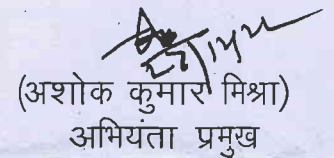 (अशोक कुमार मिश्रा)
अभियंता प्रमुख